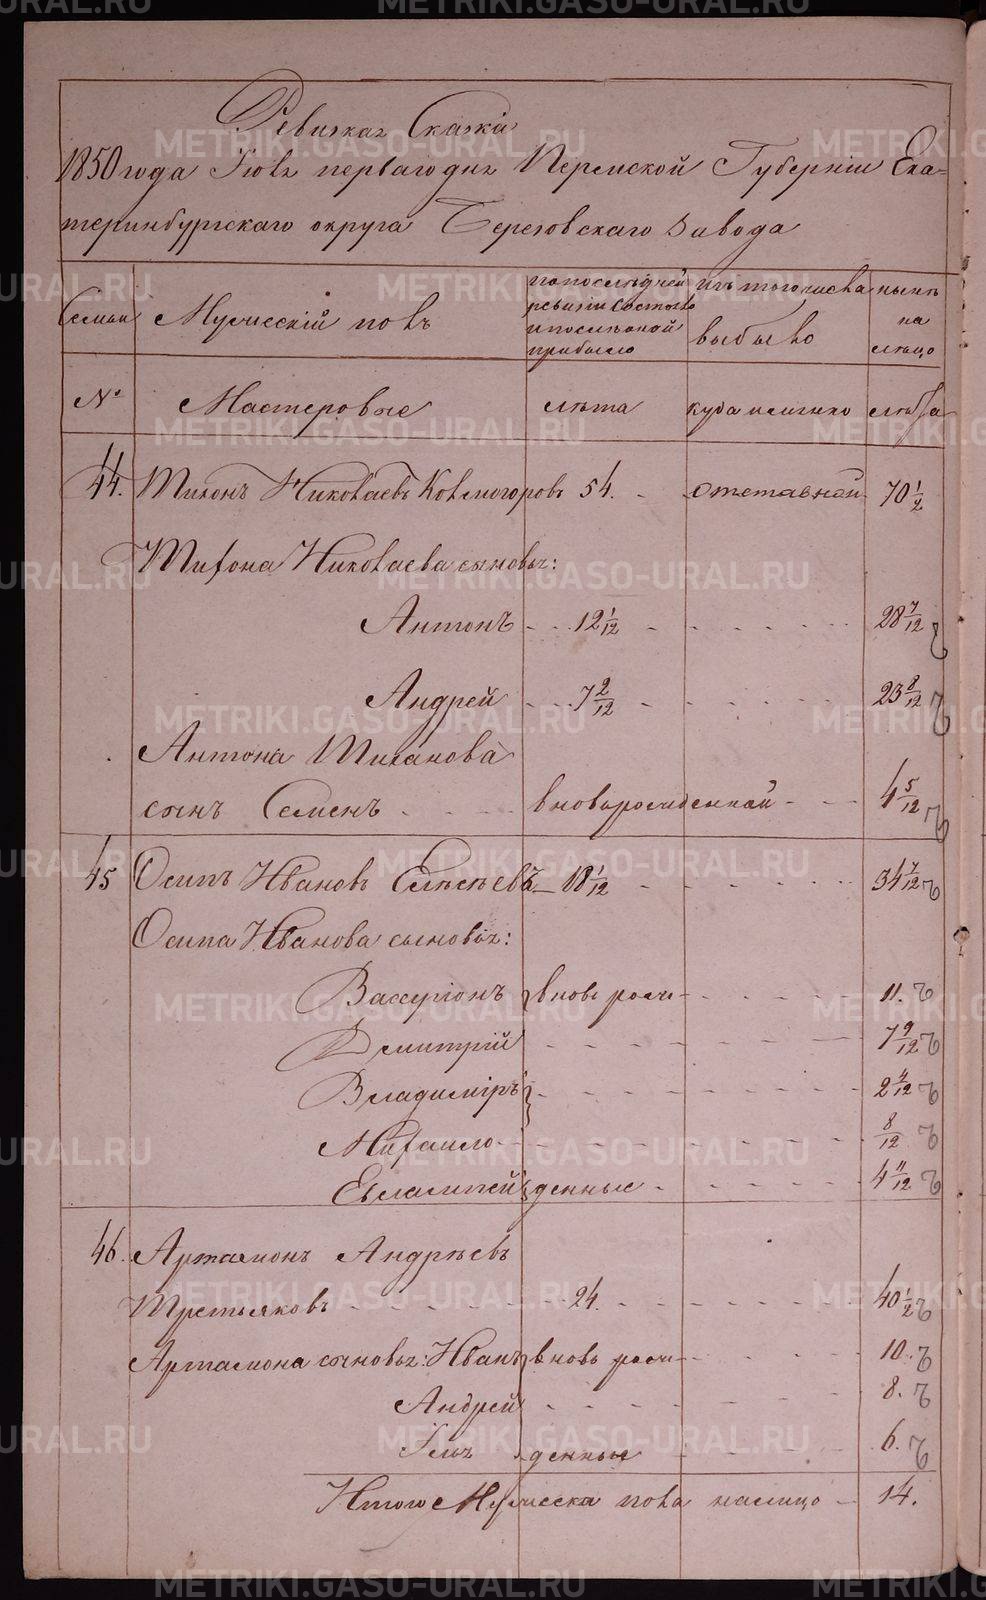 Ревизкая Сказка
1850 года Іюля перваго дня Пермской Губерніи Ека-
теринбургскаго округа Березовскаго Завода
Семьи Мужескій полъ по последней ревизіи состояло и после оной прибыло изъ того числа выбыло ныне на лицо
№ Мастеровые лета куда именно лета
44. Тихонъ Николаевъ Колмогоровъ 54. отставной 70 1/2
Тихона Николаева сыновья:
Антонъ 12 1/12 28 7/12
Андрей 7 2/12 23 8/12
Антона Тиханова
сынъ Семенъ вновьрожденной 4 5/12
45 Осипъ Ивановъ Елисеевъ 18 1/12 34 7/12
Осипа Иванова сыновья:
вновь рож 11.
Дмитрій 7 9/12
Владиміръ 2 4/12
Михаило 8/12
Евлампей денные 4 11/12
46. Артамонъ Андреевъ
Третьяковъ 24. 40 1/2
Артамона сыновья: Иванъ вновь рож 10.
Андрей 8.
Илья денные 6.
Итого Мужеска пола налицо 14.
METRIKI.GASO-URAL.RU